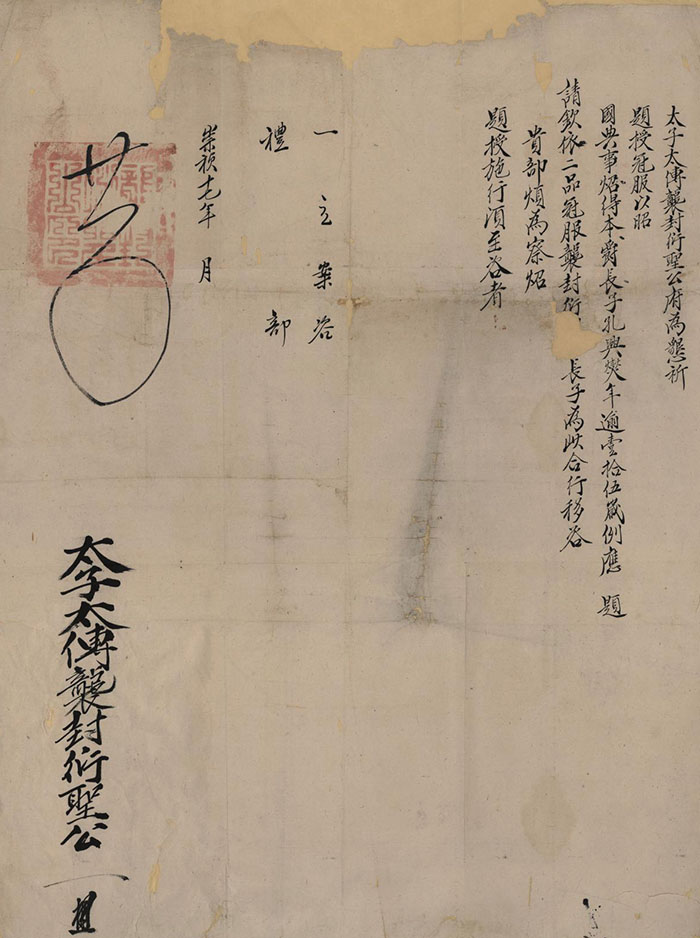 太子太傅襲封衍聖公府為懇祈
題授冠服以昭
國典事炤得本爵長子孔興燮年逾壹拾伍歲例應 題
請欽依二品冠服襲封衍 長子為此合行移咨
貴部煩為察炤
題授施行須至咨者
一立案咨
禮 部
崇禎十七年 月
太子太傅襲封衍聖公